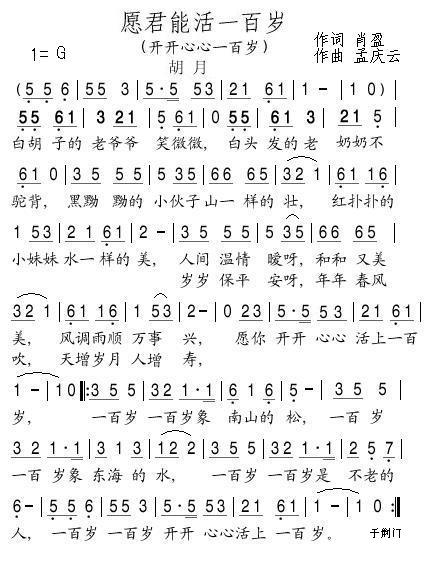 愿君能活一百岁
(开开心心一百岁)
1= G
作词 肖盈
作曲 孟庆云
胡 月
(5 5 6 | 55 3 | 5·5 53 | 21 61 | 1 - | 1 0)|
55 61 | 3 21 | 5535 | 5 - | 55 61 | 3 | 2321 |
白胡 子的 老爷爷 笑微微, 白头 发的 老 奶奶不
61 0 | 35 55 | 5 35 | 65 65 | 32 1 | 61 16 |
驼背, 黑黝 黝的 小伙子山一样的 壮, 红扑扑的
1 53 | 22 61 | 2 - | 33 55 | 5 35 | 66 65 |
小妹妹 水一样的 美, 人间 温情 暧呀, 和和 又美
岁岁 保平 安呀, 年年 春风
32 1 | 61 16 | 1 53 | 2 - | 0 23 | 5·5 53 | 21 61 |
美, 风调雨顺 万事 兴, 愿你 开开 心心 活上一百
吹, 天增岁月 人增 寿,
1 - | 1 0 ‖: 3 5 5 | 32 1·1 | 6 1 6 | 5 - | 3 5 5 |
岁, 一百岁 一百岁象 南山的 松, 一百 岁
32 1·1 | 3 1 3 | 12 2 | 3 5 5 | 32 1·1 | 2 5 7 |
一百 岁象 东海 的 水, 一百岁 一百岁是 不老的
6 - | 5 5 6 | 55 3 | 5·5 53 | 21 61 | 1 - | 1 0 :‖
人, 一百岁 一百岁 开开 心心活上 一百 岁。